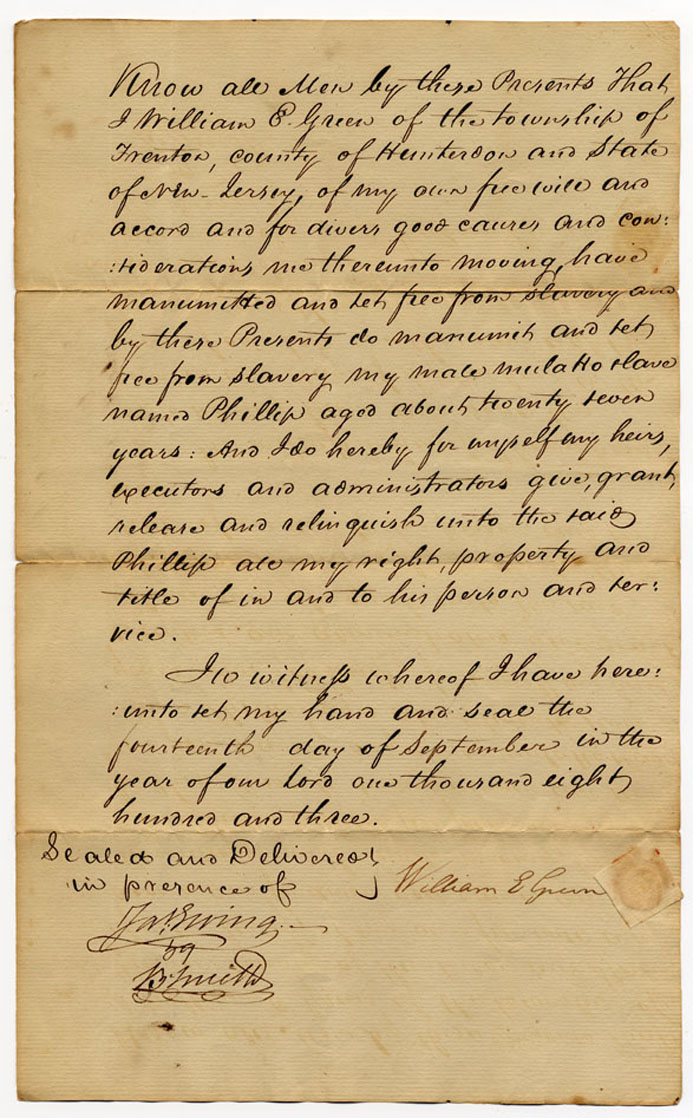 Know all Men by these Presents That
I William E. Green of the township of
Trenton, county of Hunterdon and State
of New-Jersey, of my own free will and
accord and for divers good causes and con:
:siderations me thereunto moving, have
manumitted and set free from slavery and
by these Presents do manumit and set
free from slavery my male mulatto slave
named Phillip aged about twenty seven
years: And I do hereby for myself my heirs,
executors and administrators give, grant,
release and relinquish unto the said
Phillip all my right, property and
title of in and to his person and ser:
vice.
In witness whereof I have here:
:unto set my hand and seal the
fourteenth day of September in the
year of our Lord one thousand eight
hundred and three.
Sealed and Delivered
in presence of
William E Green
Jas. Ewing
B. Smith